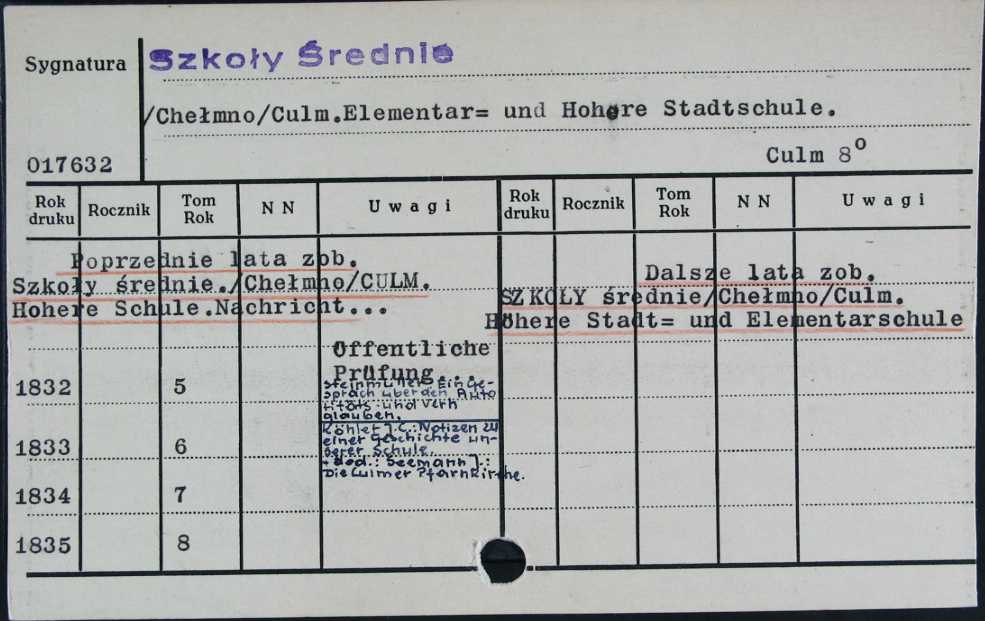 Szkoły Średnie
Sygnatura
/Chełmno/Culm.Elementar= und Hohere Stadtschule.
017632
Culm 8°
Rok druku Rocznik Tom Rok N N Uwagi Rok druku Rocznik Tom Rok N N Uwagi
Poprzednie lata zob.
Szkoły średnie./Chełmno/CULM.
Hohere Schule.Nachricht...
Dalsze lata zob.
SZKOLY średnie/Chełmno/Culm.
Höhere Stadt= und Elementarschule
Öffentliche
Prüfung...
1832 5
Steinmüller: Ein Ge-
spräch über den Auto
ritäts- und Vern
glauben.
Köhler J.C.: Notizen zu
einer Geschichte un-
serer Schule.
1833 6
+ dod.: Seemann J.:
Die Culmer Pfarrkirche.
1834 7
1835 8